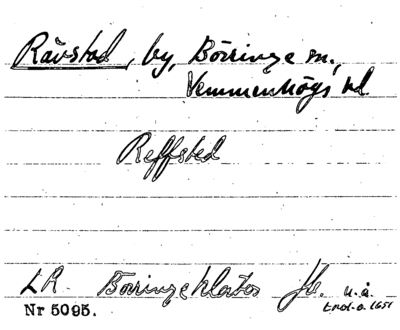 Rävstad, by, Börringe sn,
Vemmenhögs hd
Reffsted
LA Börringekloster Jb. u.å.
trol. o. 1651
Nr 5095.